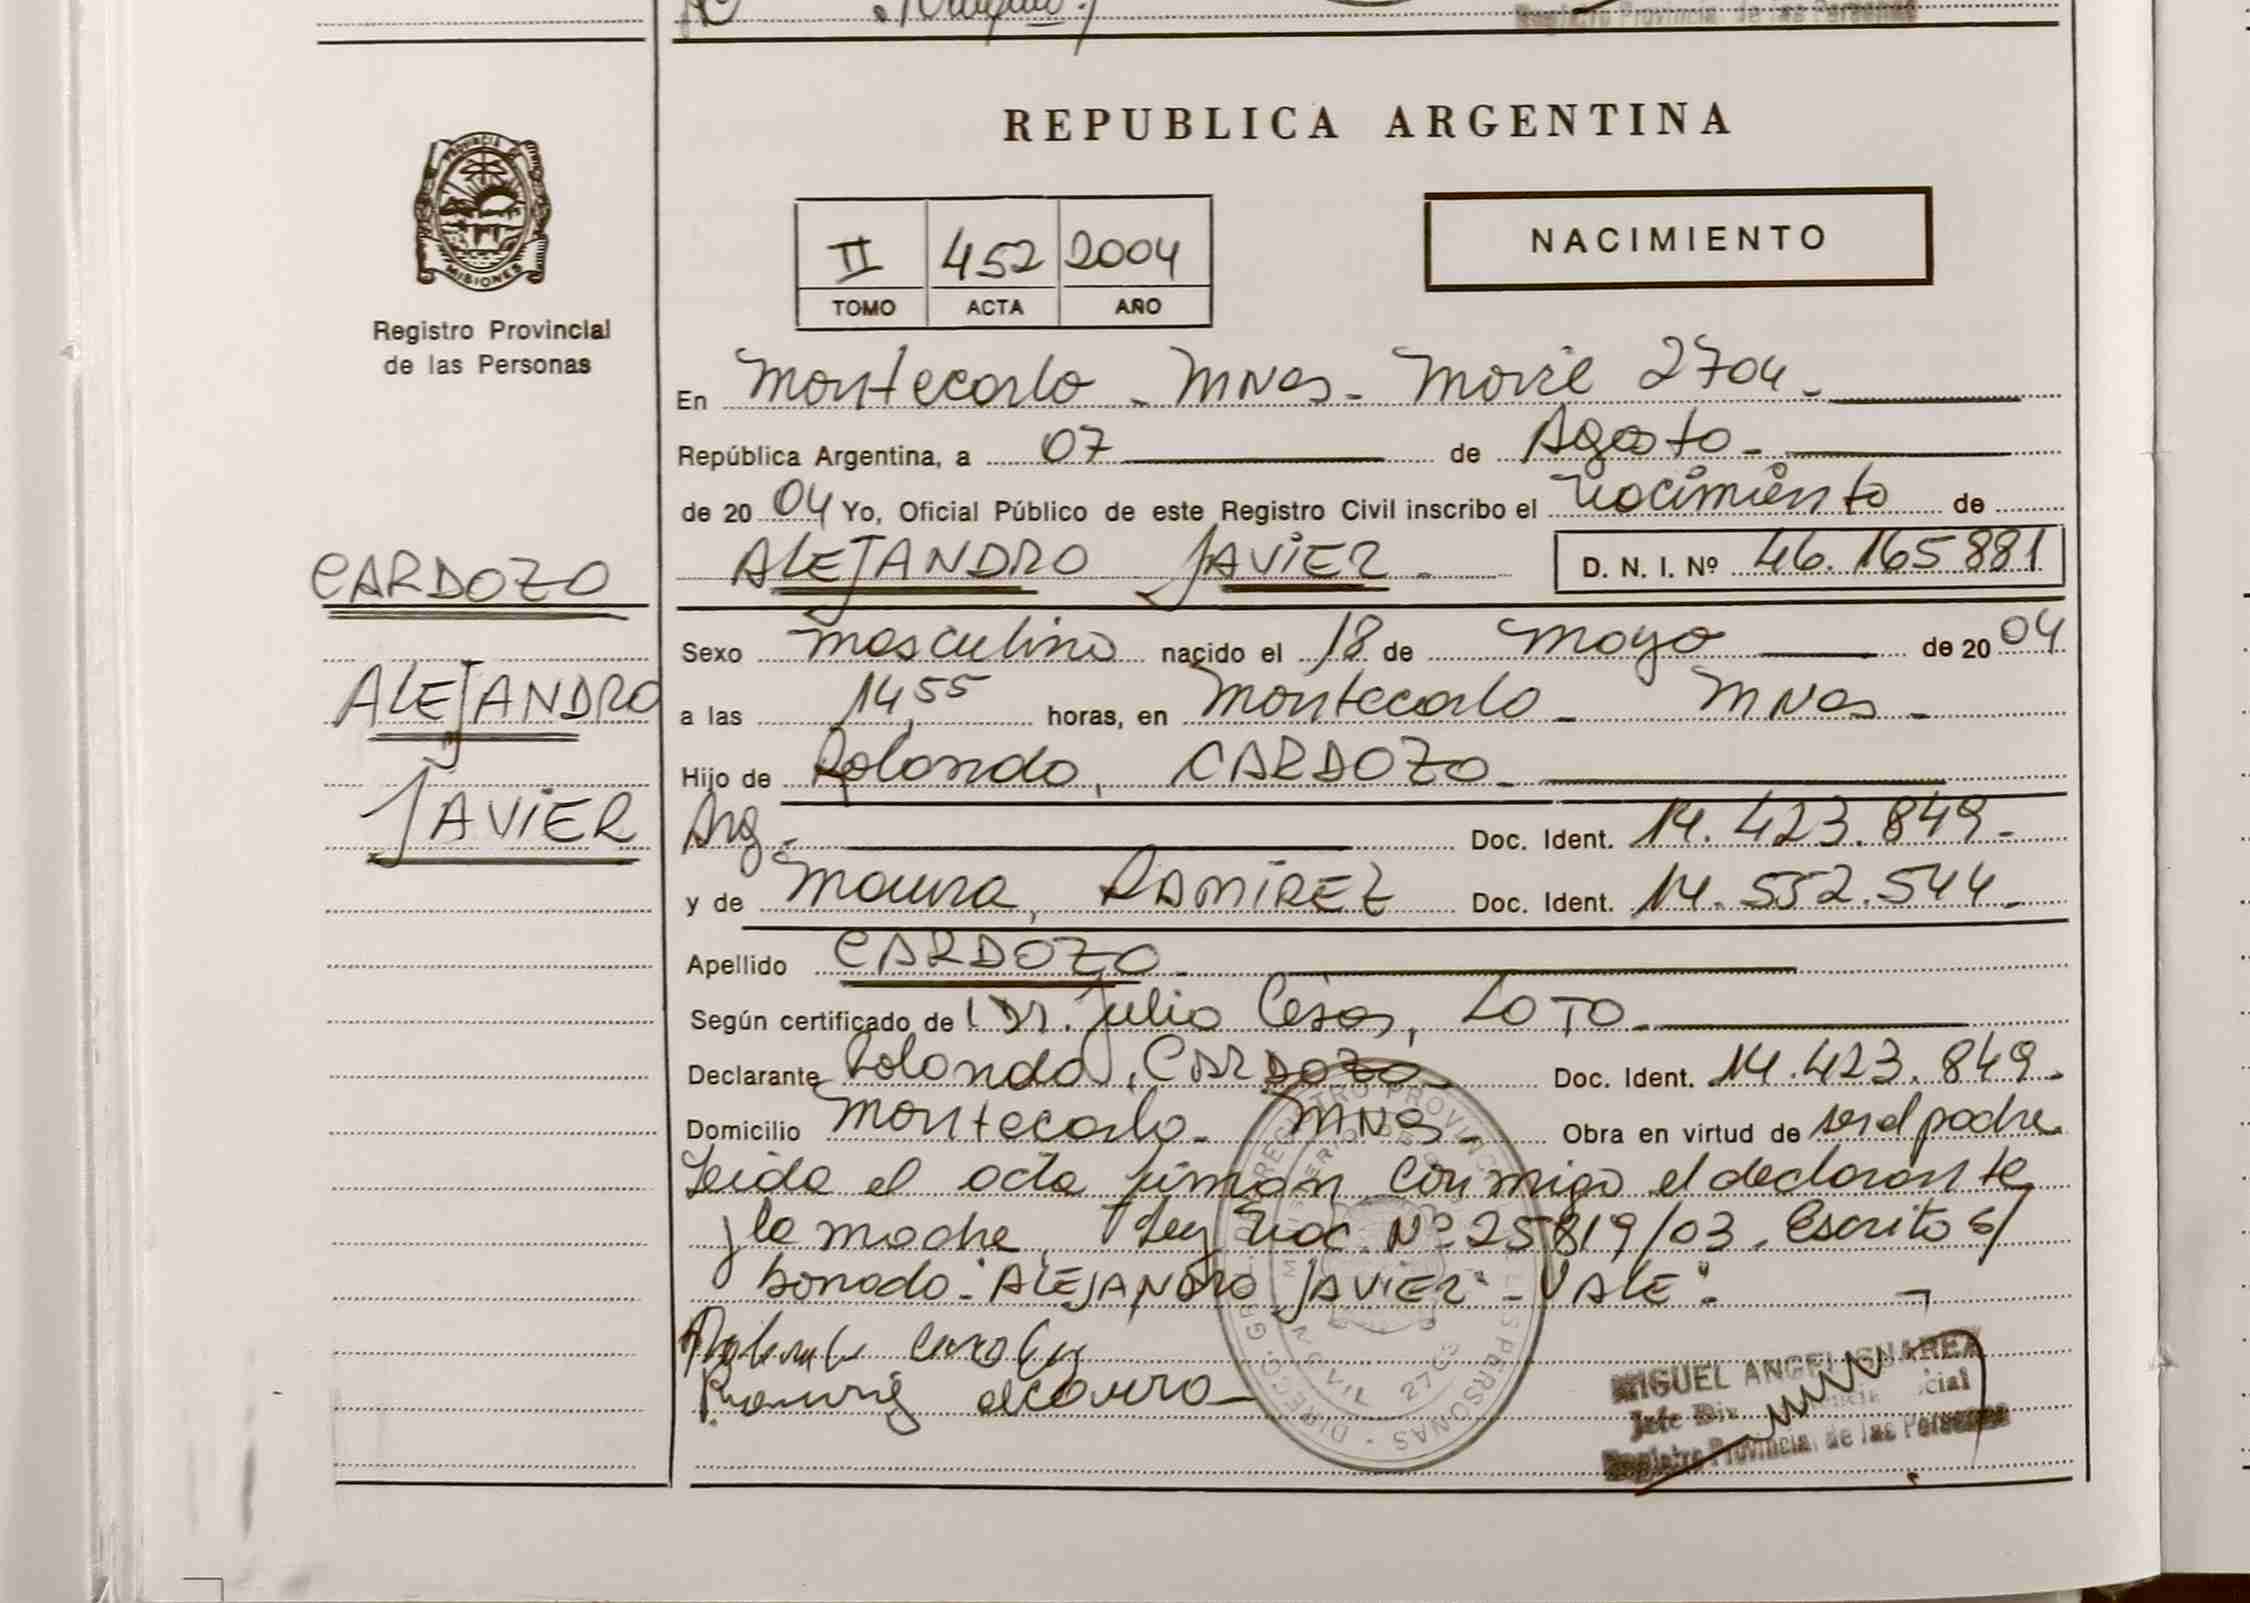 Registro Provincial de las Personas
REPUBLICA ARGENTINA
PROVINCIA DE
MISIONES
Registro Provincial
de las Personas
II 452 2004
TOMO ACTA AÑO
NACIMIENTO
En Montecarlo - MNes - Movil 2704 -
República Argentina, a 07 de Agosto -
de 2004 Yo, Oficial Público de este Registro Civil inscribo el Nacimiento de
ALEJANDRO JAVIER - D. N. I. Nº 46.165881
CARDOZO
ALEJANDRO
JAVIER
Sexo masculino nacido el 18 de Mayo de 2004
a las 14,55 horas, en Montecarlo - MNes -
Hijo de Rolando, CARDOZO -
Arg - Doc. Ident. 14.423.849 -
y de Maura, RAMIREZ Doc. Ident. 14.552.544 -
Apellido CARDOZO -
Según certificado de Dr. Julio Cesar, LOTO -
Declarante Rolando, CARDOZO - Doc. Ident. 14.423.849 -
Domicilio Montecarlo - MNes - Obra en virtud de ser el padre
Leida el acta firman conmigo el declarante
y la madre, Ley Nac. Nº 25819/03. Escrito s/
borrado "ALEJANDRO JAVIER" - VALE" -
MIGUEL ANGEL SUAREZ
Registro Provincial de las Personas